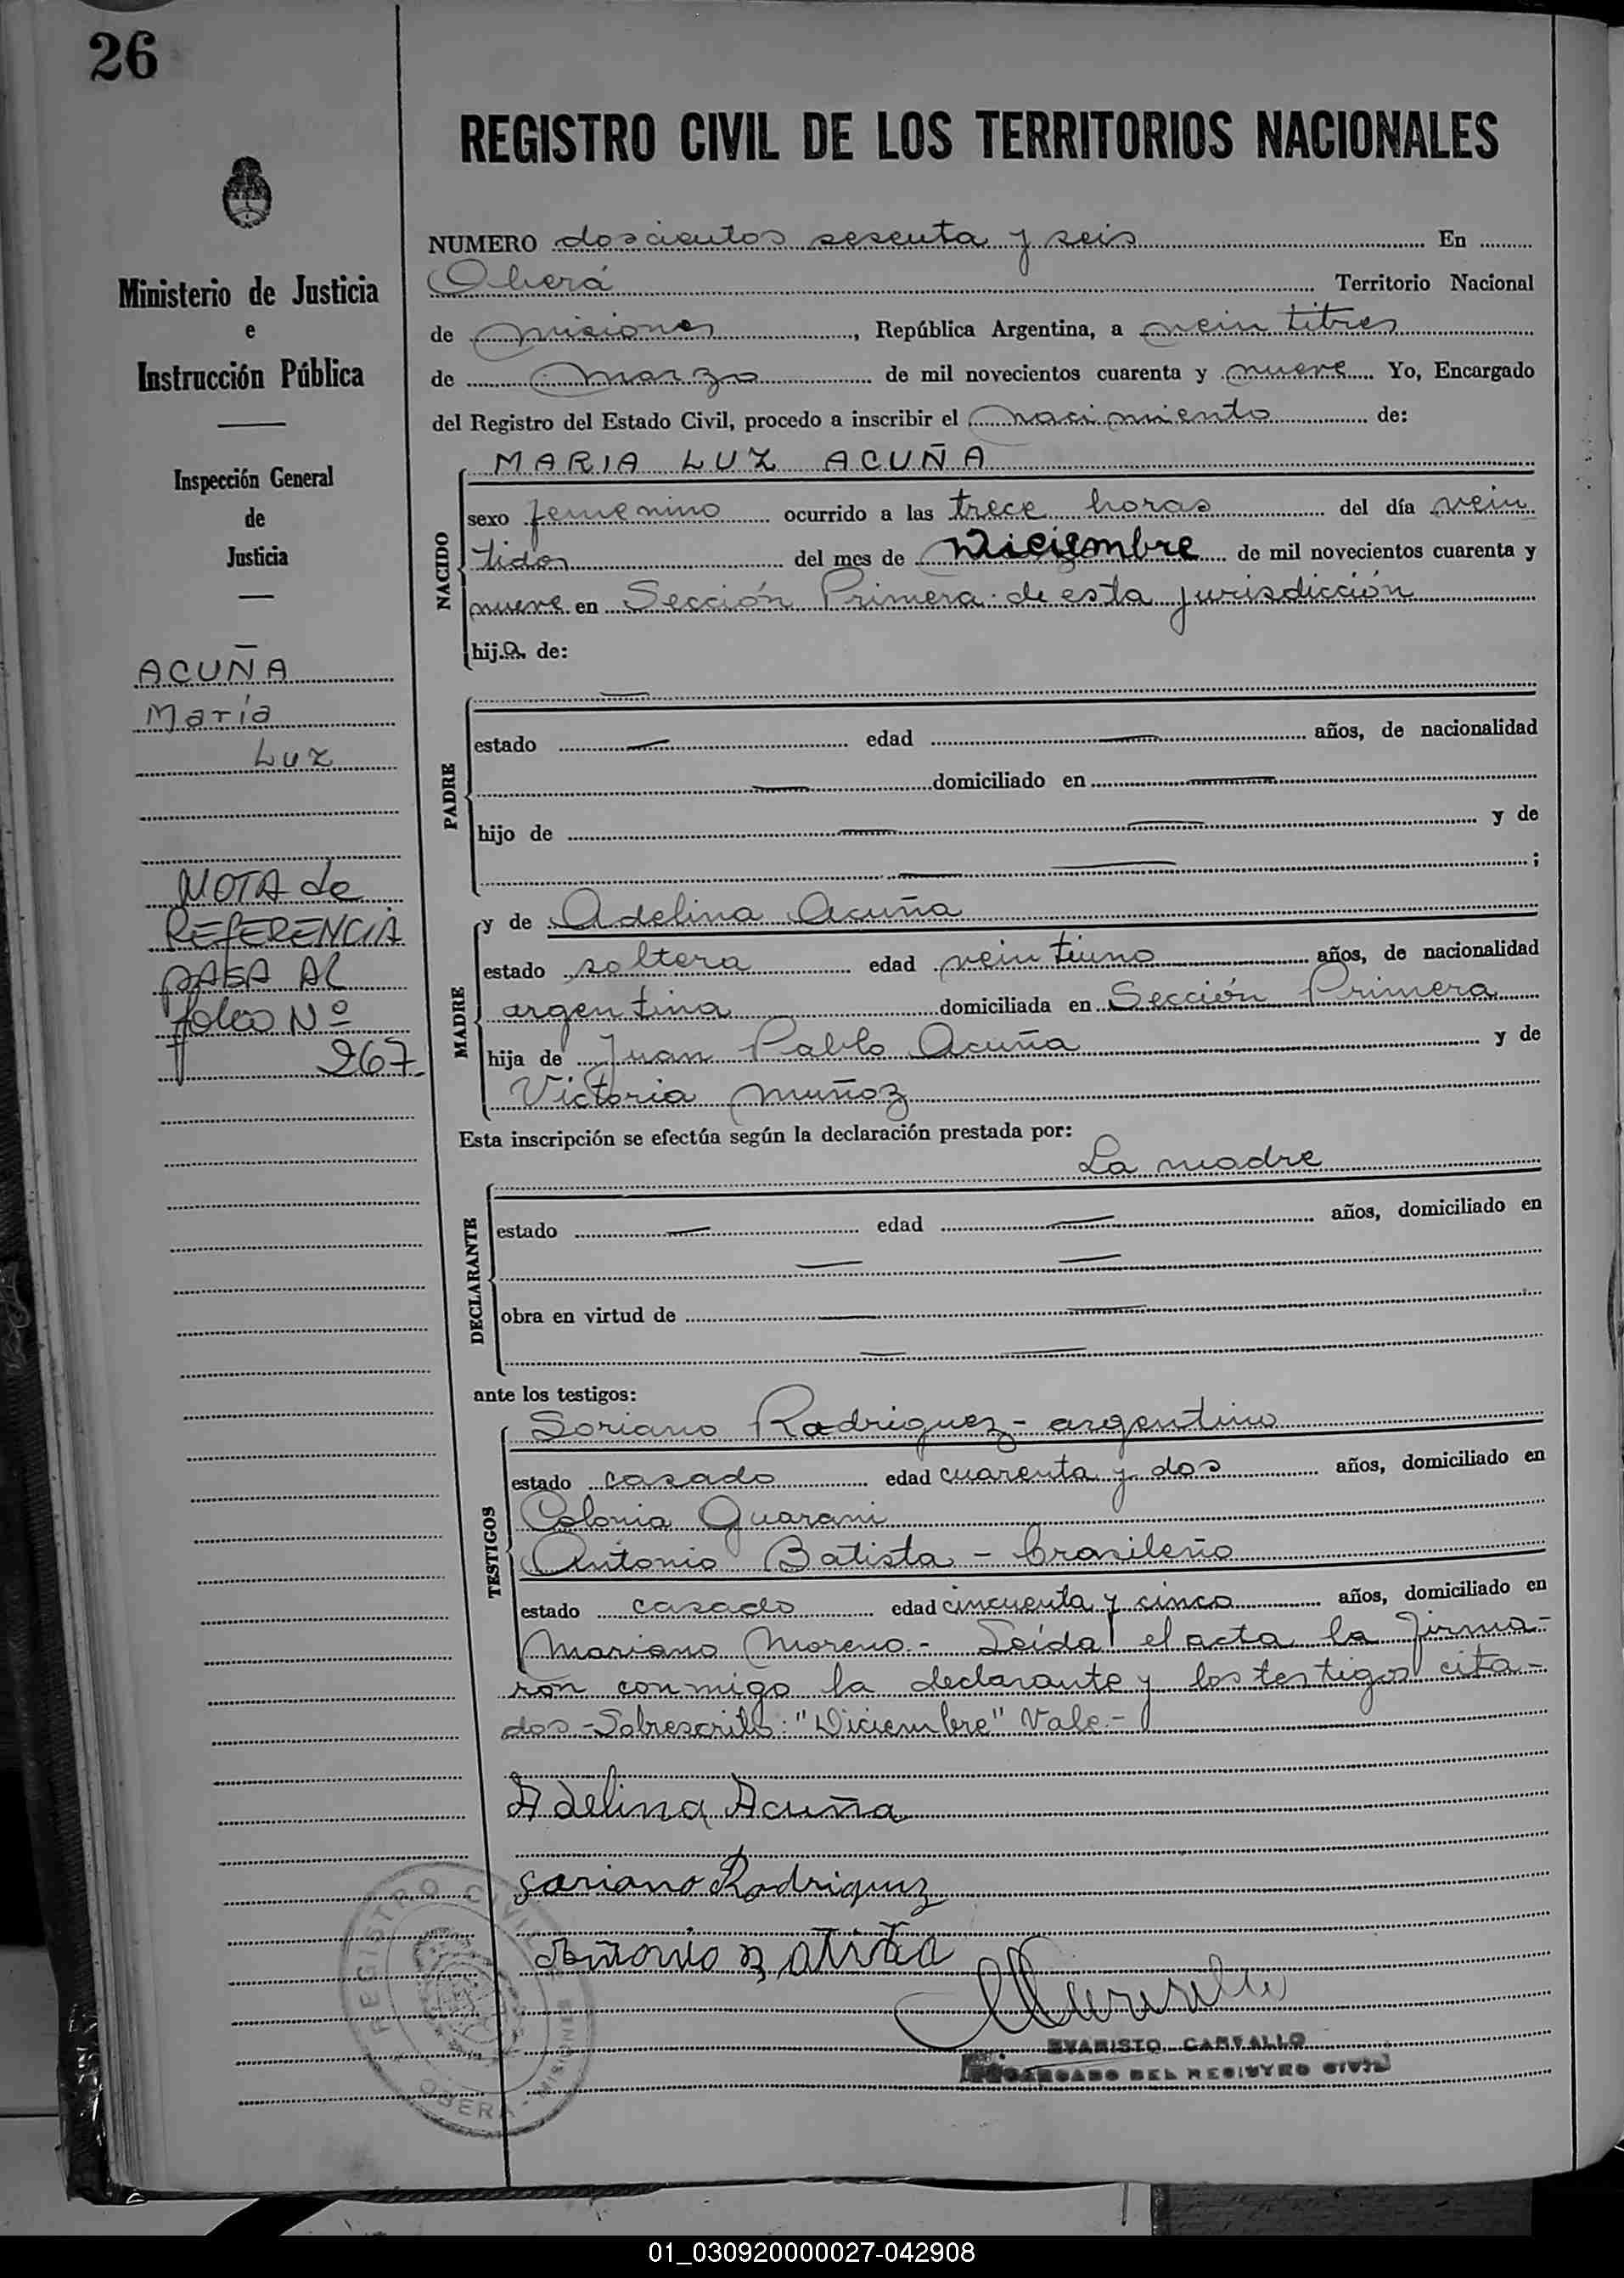 26
REGISTRO CIVIL DE LOS TERRITORIOS NACIONALES
Ministerio de Justicia
e
Instrucción Pública
Inspección General
de
Justicia
ACUÑA
María
Luz
NOTA de
REFERENCIA
PASA AL
folio Nº
267.
NUMERO doscientos sesenta y seis En
Oberá Territorio Nacional
de misiones, República Argentina, a veintitres
de marzo de mil novecientos cuarenta y nueve Yo, Encargado
del Registro del Estado Civil, procedo a inscribir el nacimiento de:
NACIDO
MARIA LUZ ACUÑA
sexo femenino ocurrido a las trece horas del día vein
tidos del mes de Diciembre de mil novecientos cuarenta y
nueve en Sección Primera de esta jurisdicción
hija de:
PADRE
estado — edad — años, de nacionalidad
— domiciliado en —
hijo de — — y de
— — ;
MADRE
y de Adelina Acuña
estado soltera edad veintiuno años, de nacionalidad
argentina domiciliada en Sección Primera
hija de Juan Pablo Acuña y de
Victoria muñoz
Esta inscripción se efectúa según la declaración prestada por:
La madre
DECLARANTE
estado — edad — años, domiciliado en
— —
obra en virtud de — —
— —
ante los testigos:
TESTIGOS
Soriano Rodriguez - argentino
estado casado edad cuarenta y dos años, domiciliado en
Colonia Guarani
Antonio Batista - brasileño
estado casado edad cincuenta y cinco años, domiciliado en
Mariano Moreno.- Leída el acta la firma-
ron conmigo la declarante y los testigos cita-
dos - Sobrescrito: "Diciembre" Vale.-
Adelina Acuña
Soriano Rodriguez
Antonio Batista
EVARISTO CARVALLO
ENCARGADO DEL REGISTRO CIVIL
REGISTRO CIVIL
OBERA - MISIONES
01_030920000027-042908